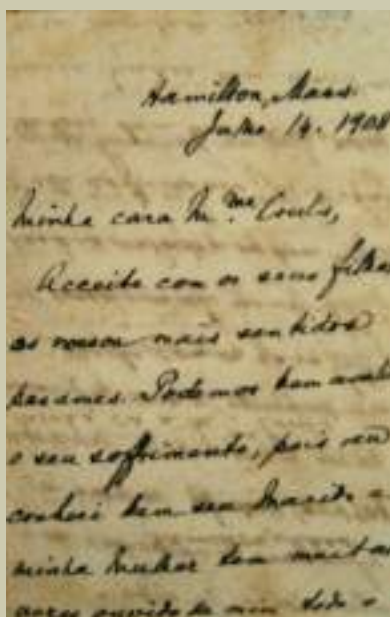 Hamilton, Mass.
June 14. 1908
Minha cara Mme
Acceite com os seus filhos
os nossos mais sentidos
pesames. Podemos bem
o seu soffrimento, pois eu
conheci bem seu marido e
minha mulher tem muitas
vezes ouvido de mim todo o